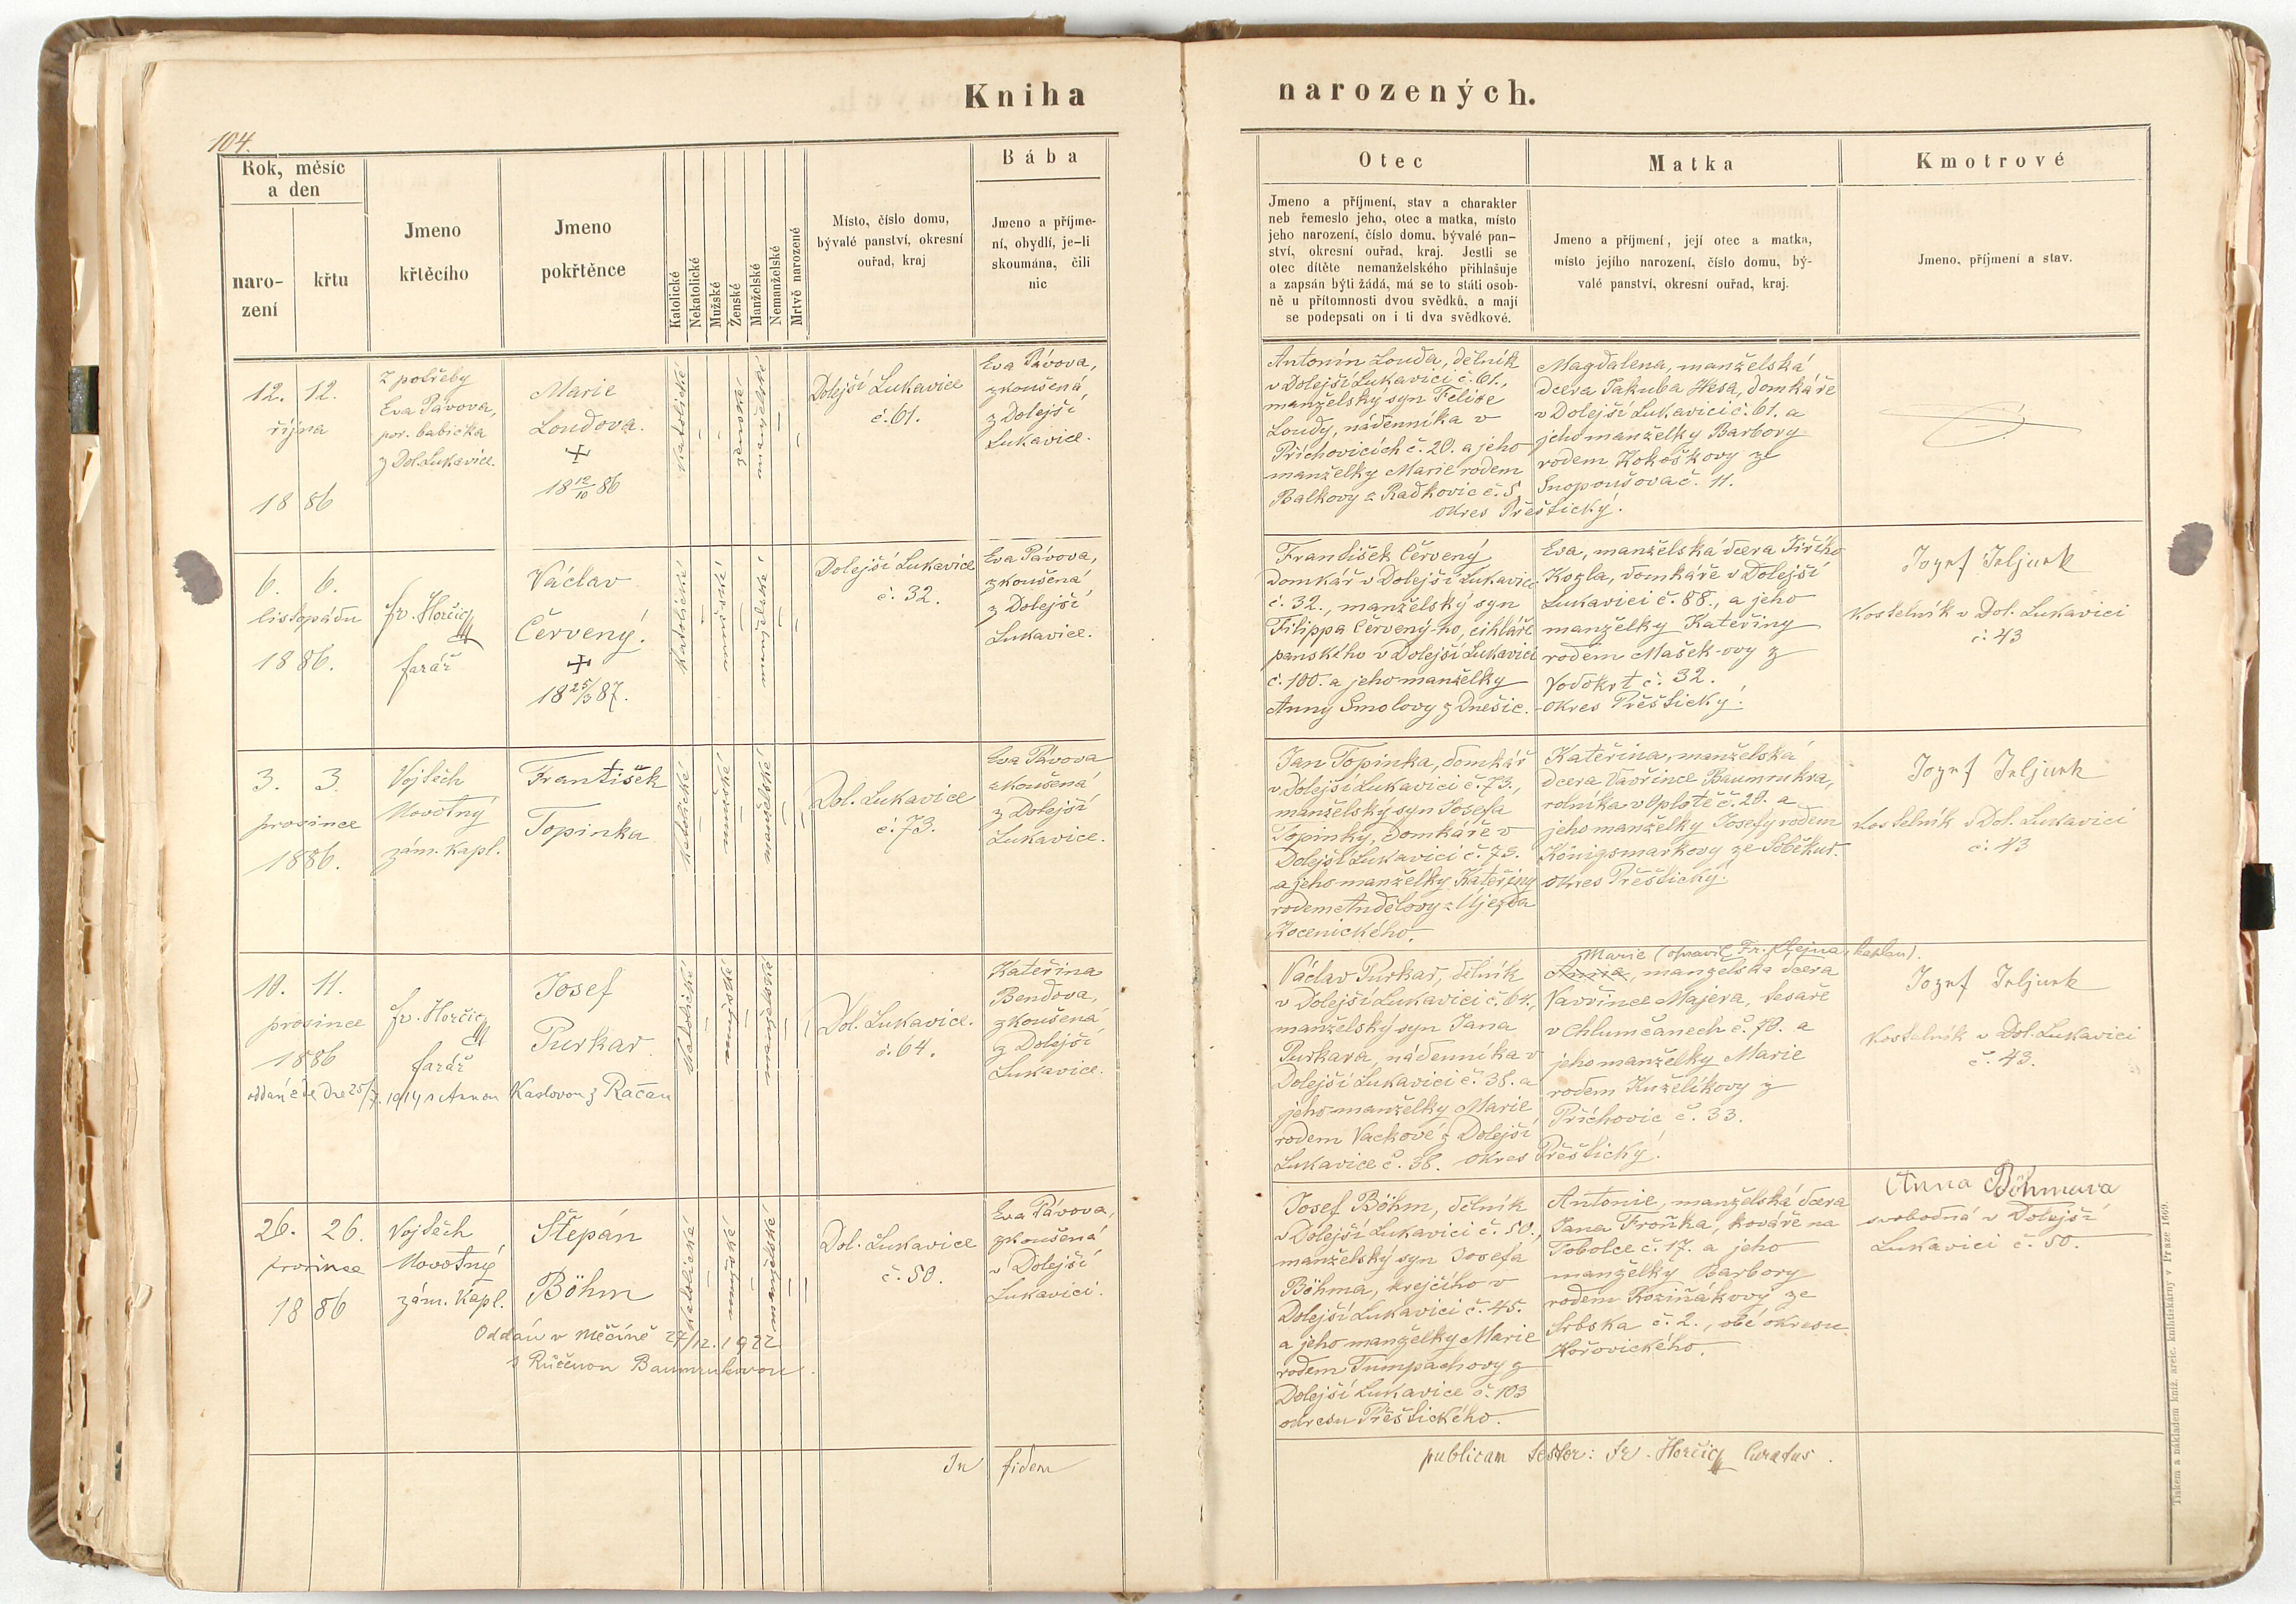 Kniha
narozených.
104.
Rok, měsíc
a den
naro-
zení
křtu
Jmeno
křtěcího
Jmeno
pokřtěnce
Katolické
Nekatolické
Mužské
Ženské
Manželské
Nemanželské
Mrtvě narozené
Místo, číslo domu,
bývalé panství, okresní
ouřad, kraj
Bába
Jmeno a příjme-
ní, obydlí, je-li
skoumána, čili
nic
Otec
Jmeno a příjmení, stav a charakter
neb řemeslo jeho, otec a matka, místo
jeho narození, číslo domu, bývalé pan-
ství, okresní ouřad, kraj. Jestli se
otec dítěte nemanželského přihlašuje
a zapsán býti žádá, má se to státi osob-
ně u přítomnosti dvou svědků, a mají
se podepsati on i ti dva svědkové.
Matka
Jmeno a příjmení, její otec a matka,
místo jejího narození, číslo domu, bý-
valé panství, okresní ouřad, kraj.
Kmotrové
Jmeno, příjmení a stav.
12. 12.
října
18 86
Z potřeby
Eva Pávova,
por. babička
z Dol. Lukavice.
Marie
Loudova.
18 12/10 86
katolické
ženské
manželské
Dolejší Lukavice
č. 61.
Eva Pávova,
zkoušená
z Dolejší
Lukavice.
Antonín Louda, dělník
v Dolejší Lukavici č. 61.,
manželský syn Felixe
Loudy, nádenníka v
Příchovicích č. 20. a jeho
manželky Marie rodem
Balkovy z Radkovic č. 5,
okres Přeštický.
Magdalena, manželská
dcera Jakuba Hesa, domkáře
v Dolejší Lukavici č. 61. a
jeho manželky Barbory
rodem Kokoškovy ze
Snopoušova č. 11.
6. 6.
listopádu
18 86.
fr. Horčic
farář
Václav
Červený.
18 25/3 87.
katolické
mužské
manželské
Dolejší Lukavice
č. 32.
Eva Pávova,
zkoušená
z Dolejší
Lukavice.
František Červený
domkář v Dolejší Lukavici
č. 32., manželský syn
Filippa Červený-ho, cihláře
panského v Dolejší Lukavici
č. 100. a jeho manželky
Anny Smolovy z Dnešic.
Eva, manželská dcera Jiřího
Kozla, domkáře v Dolejší
Lukavici č. 88., a jeho
manželky Kateřiny
rodem Mašek-ovy z
Vodokrt č. 32.
okres Přeštický.
Kostelník v Dol. Lukavici
č. 43
3. 3.
prosince
1886.
Vojtěch
Novotný
zám. kapl.
František
Topinka
katolické
mužské
manželské
Dol. Lukavice
č. 73.
Eva Pávova
zkoušená
z Dolejší
Lukavice.
Jan Topinka, domkář
v Dolejší Lukavici č. 73.,
manželský syn Josefa
Topinky, domkáře v
Dolejší Lukavici č. 73.
a jeho manželky Kateřiny
rodem Andělovy z Újezda
Kocenického.
Kateřina, manželská
dcera Vavřince Baumrukra,
rolníka v Oplotě č. 20. a
jeho manželky Josefy rodem
Königsmarkovy ze Soběkur.
okres Přeštický.
Kostelník v Dol. Lukavici
č. 43
10. 11.
prosince
1886
fr. Horčic
farář
Josef
Purkar
1914 s Annou Kaslovou z Račan
katolické
mužské
manželské
Dol. Lukavice.
č. 64.
Kateřina
Bendova,
zkoušená
z Dolejší
Lukavice.
Václav Purkar, dělník
v Dolejší Lukavici č. 64.,
manželský syn Jana
Purkara, nádenníka v
Dolejší Lukavici č. 38. a
jeho manželky Marie
rodem Vackové z Dolejší
Lukavice č. 38. okres Přeštický.
Marie (opravil Fr. Stejna, kaplan).
Anna, manželská dcera
Vavřince Majera, tesaře
v Chlumčanech č. 70. a
jeho manželky Marie
rodem Kuželíkovy z
Příchovic č. 33.
Kostelník v Dol. Lukavici
č. 43.
26. 26.
prosince
18 86
Vojtěch
Novotný
zám. kapl.
Štěpán
Böhm
Oddán v Měčíně 27/12. 1922
s Růženou Baumrukovou.
katolické
mužské
manželské
Dol. Lukavice
č. 50.
Eva Pávova,
zkoušená
v Dolejší
Lukavici.
Josef Böhm, dělník
v Dolejší Lukavici č. 50.,
manželský syn Josefa
Böhma, krejčího v
Dolejší Lukavici č. 45.
a jeho manželky Marie
rodem Tumpachovy z
Dolejší Lukavice č. 103
okresu Přeštického.
Antonie, manželská dcera
Jana Froňka, kováře na
Tobolce č. 17. a jeho
manželky Barbory
rodem Koziňákovy ze
Srbska č. 2., obé okresu
Hořovického.
Anna Böhmova
svobodná v Dolejší
Lukavici č. 50.
In fidem publicam testor: Fr. Horčic Curatus.
Tiskem a nákladem kníž. arcib. knihtiskárny v Praze 1669.